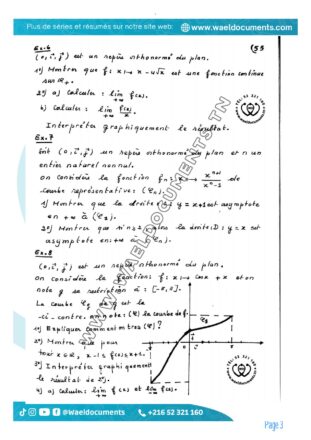 Plus de séries et résumés sur notre site web: www.waeldocuments.com
Ex.6 (55
(o, i⃗, j⃗) est un repère orthonormé du plan.
1°) Montrer que f: x ↦ x - 4√x est une fonction continue
sur IR+.
2°) a) Calculer: lim f(x).
+∞
b) Calculer: lim f(x)/x
+∞
Interpréter graphiquement le résultat.
Ex.7
Soit (o, i⃗, j⃗) un repère orthonormé du plan et n un
entier naturel non nul.
On considère la fonction fn: x ↦ x^(n+1)/(x^n - 1) de
courbe représentative: (Cn).
1°) Montrer que la droite y = x+1 est asymptote
en +∞ à (C1).
2°) Montrer que si n≥2 alors la droite D: y = x est
asymptote en +∞ à (Cn).
Ex.8
(o, i⃗, j⃗) est un repère orthonormé du plan.
On considère la fonction f: x ↦ cos x + x et on
note g sa restriction à: [-π, π].
La courbe Cg de g est le
ci-contre. On note: (C) la courbe de f.
1°) Expliquer comment tres (C)?
2°) Montrer que pour
tout x∈IR, x-1≤f(x)≤x+1.
3°) Interpréter graphiquement
le résultat de 2°).
4°) a) Calculer: lim f(x) et lim f(x).
Cg
WWW.WAELDOCUMENTS.TN
@Waeldocuments +216 52 321 160
Page 3